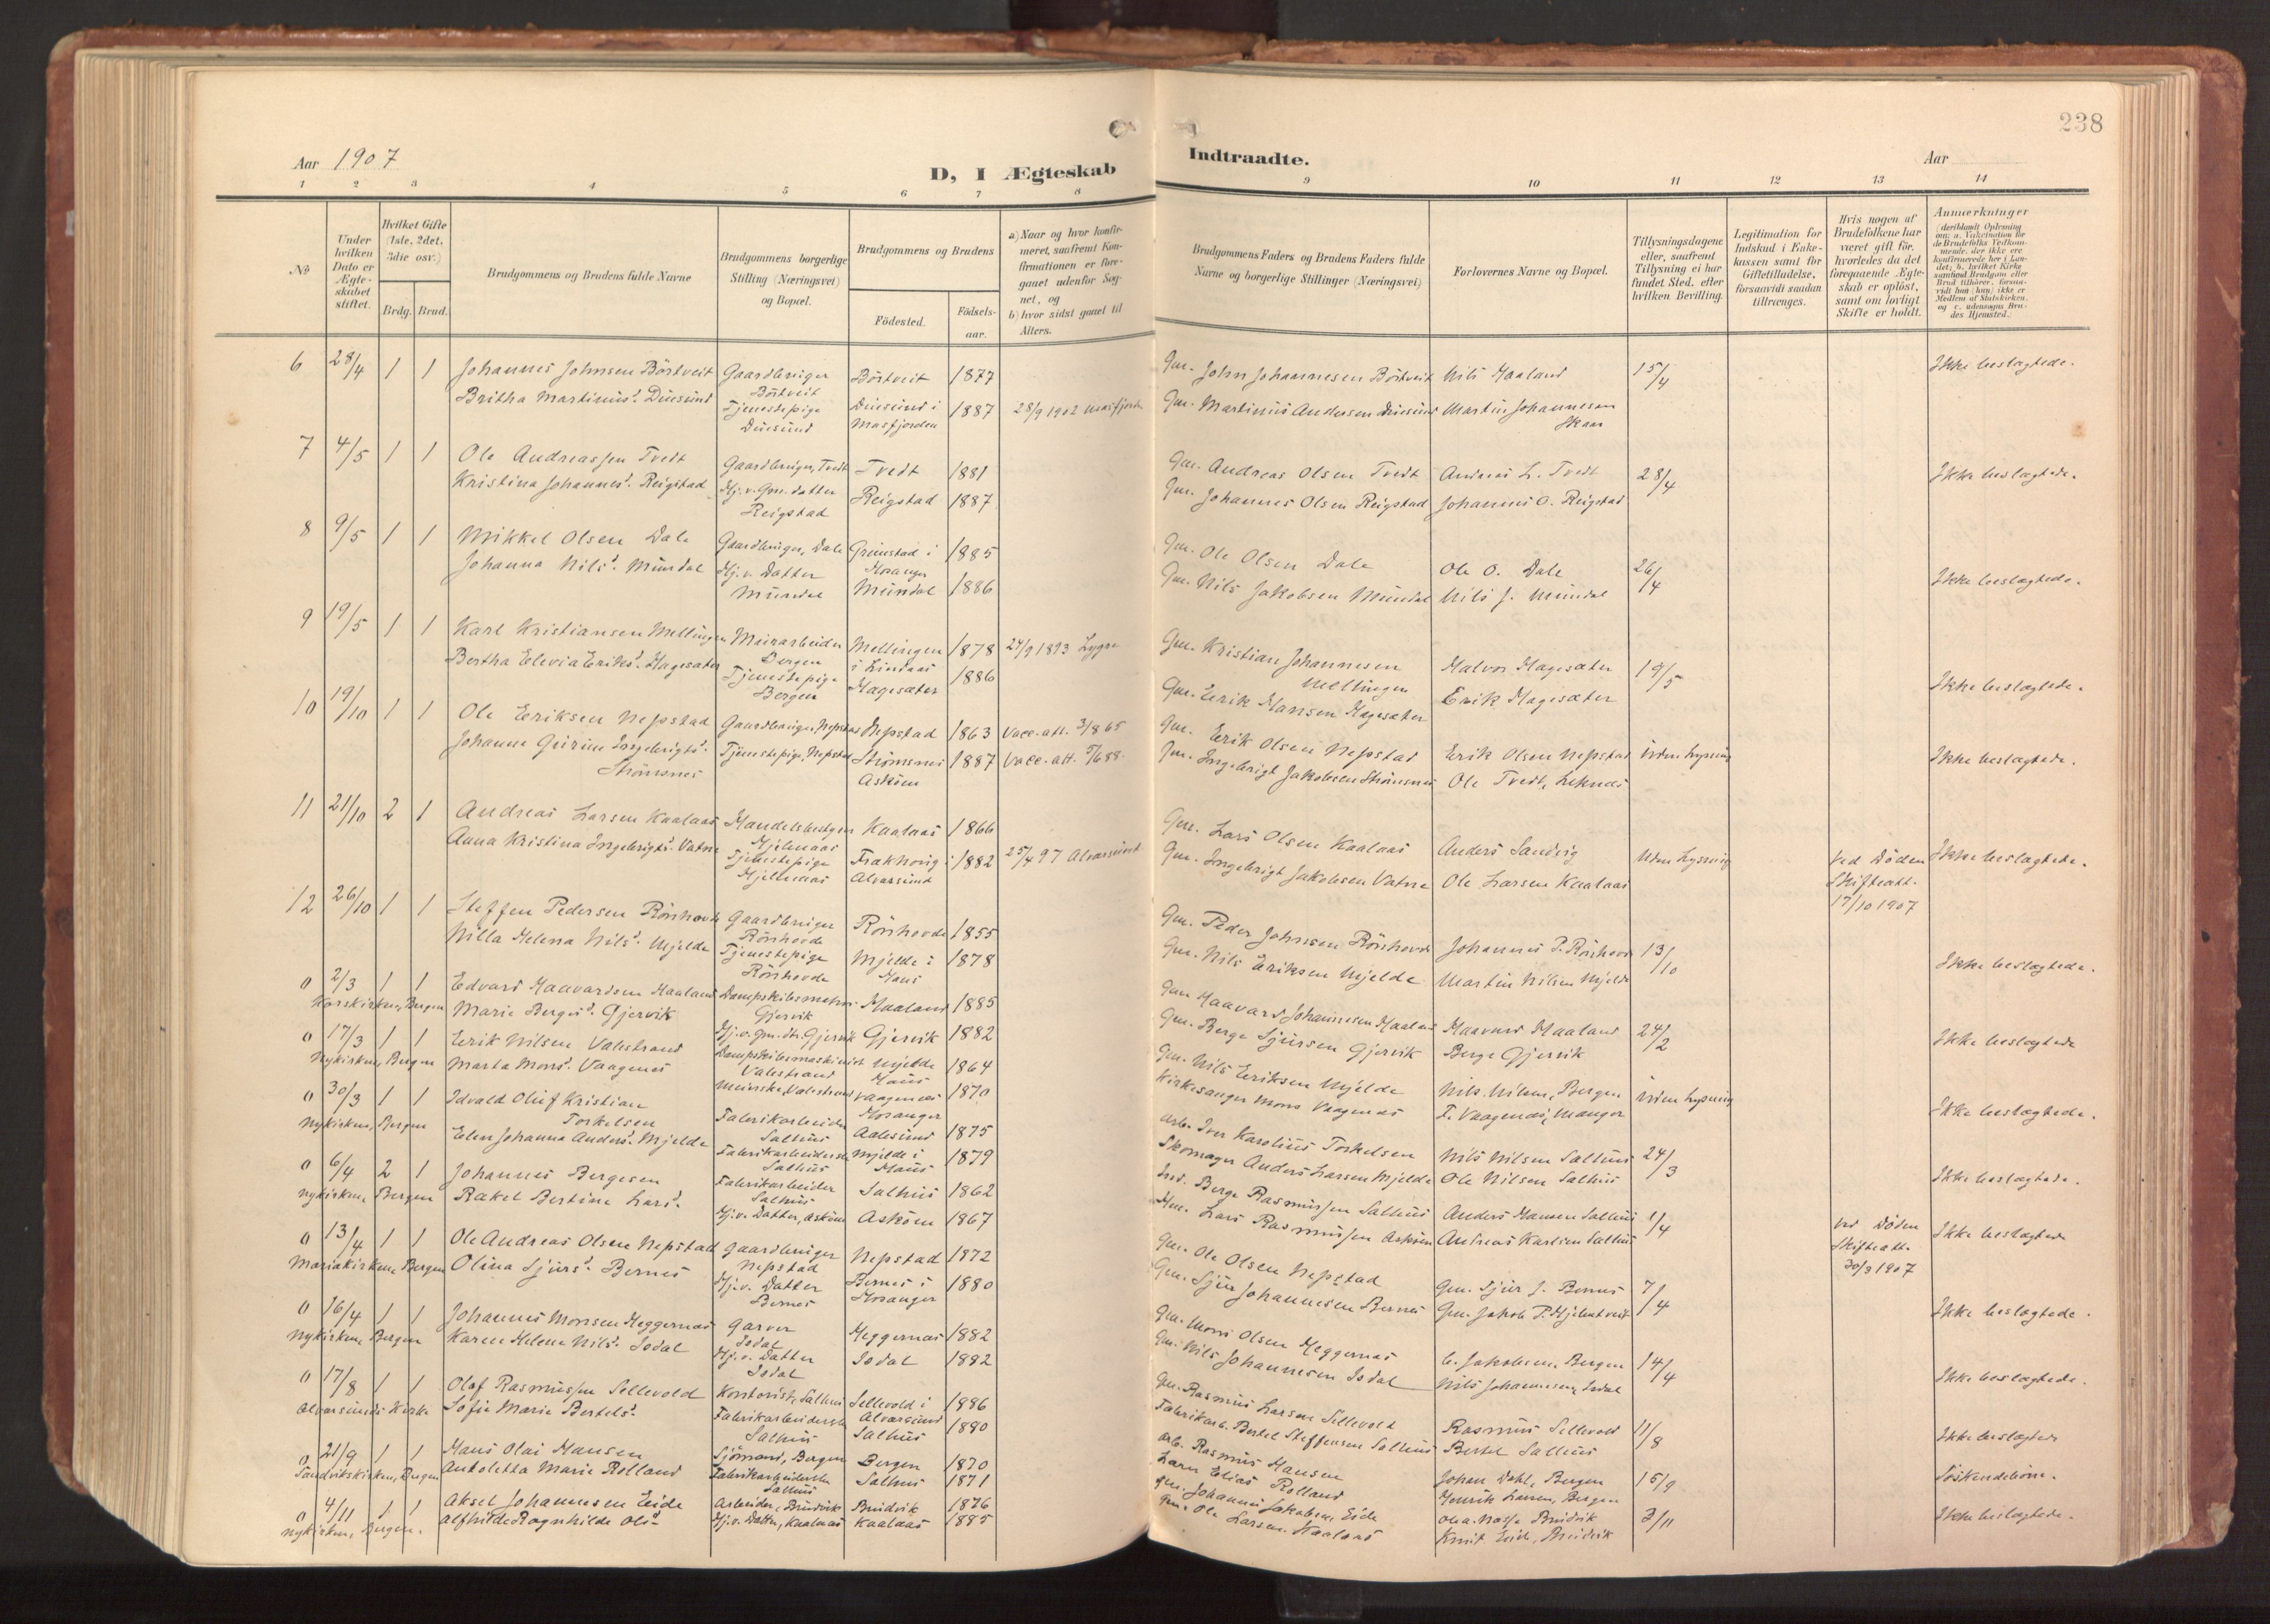 238
Aar 1907
D, I Ægteskab
Indtraadte.
Aar
1 2 3 4 5 6 7 8 9 10 11 12 13 14
No
Under hvilken Dato er Ægteskabet stiftet.
Hvilket Gifte (1ste, 2det, 3die osv.)
Brdg. Brud.
Brudgommens og Brudens fulde Navne
Brudgommens borgerlige Stilling (Næringsvei) og Bopæl.
Brudgommens og Brudens
Födested.
Födsels-aar.
a) Naar og hvor konfirmeret, saafremt Konfirmationen er foregaaet udenfor Sognet, og
b) hvor sidst gaaet til Alters.
Brudgommens Faders og Brudens Faders fulde Navne og borgerlige Stillinger (Næringsvei)
Forlovernes Navne og Bopæl.
Tillysningsdagene eller, saafremt Tillysning ei har fundet Sted, efter hvilken Bevilling.
Legitimation for Indskud i Enkekassen samt for Giftetilladelse, forsaavidt saadan tiltrænges.
Hvis nogen af Brudefolkene har været gift för, hvorledes da det foregaaende Ægteskab er oplöst, samt om lovligt Skifte er holdt.
Anmerkninger (deriblandt Oplysning om: a. Vakcination for de Brudefolks Vedkommende, der ikke ere konfirmerede her i Landet; b. hvilket Kirkesamfund Brudgom eller Brud tilhører, forsaavidt han (hun) ikke er Medlem af Statskirken, og c. udensogns Brudes Hjemsted.)
6 28/4 1 1 Johannes Johnsen Börtveit Gaardbruger Börtveit Börtveit 1877 Gm. John Johannesen Börtveit Nils Haaland 15/4 Ikke beslægtede.
Britha Martinusd. Duesund Tjenestepige Duesund Duesund i Masfjorden 1887 28/9 1902 Masfjorden Gm. Martinus Andersen Duesund Martin Johannesen Skaar
7 4/5 1 1 Ole Andreassen Tvedt Gaardbruger, Tvedt Tvedt 1881 Gm. Andreas Olsen Tvedt Anders L. Tvedt 28/4 Ikke beslægtede.
Kristina Johannesd. Reigstad Hj.v. Gm. datter Reigstad Reigstad 1887 Gm. Johannes Olsen Reigstad Johannes O. Reigstad
8 9/5 1 1 Mikkel Olsen Dale Gaardbruger, Dale Grimstad i Hosanger 1885 Gm. Ole Olsen Dale Ole O. Dale 26/4 Ikke beslægtede.
Johanna Nilsd. Mundal Hj.v. Datter Mundal Mundal 1886 Gm. Nils Jakobsen Mundal Nils J. Mundal
9 19/5 1 1 Karl Kristiansen Mellingen Murarbeider Bergen Mellingen i Lindaas 1878 24/9 1893 Lygre Gm. Kristian Johannesen Mellingen Halvor Hagesæter 19/5 Ikke beslægtede.
Bertha Elevia Eriksd. Hagesæter Tjenestepige Bergen Hagesæter 1886 Gm. Eerik Hansen Hagesæter Erik Hagesæter
10 19/10 1 1 Ole Eriksen Nepstad Gaardbruger, Nepstad Nepstad 1863 Vacc. att. 3/8 65 Gm. Erik Olsen Nepstad Erik Olsen Nepstad uden lysning Ikke beslægtede.
Johanne Gurine Ingebrigtsd. Strömsnes Tjenestepige, Nepstad Strömsnes Asköen 1887 Vacc. att. 5/6 88. Gm. Ingebrigt Jakobsen Strömsnes Ole Tvedt, Leknes
11 21/10 2 1 Andreas Larsen Kaalaas Handelsbestyrer Hjelmaas Kaalaas 1866 Gm. Lars Olsen Kaalaas Anders Sandvig Uden lysning Ved Döden Skifteatt. 17/10 1907 Ikke beslægtede.
Anna Kristina Ingebrigtsd. Vatne Tjenestepige Hjelmaas Frekhoug i Alversund 1882 25/4 97 Alversund Gm. Ingebrigt Jakobsen Vatne Ole Larsen Kaalaas
12 26/10 1 1 Steffen Pedersen Rönhovde Gaardbruger Rönhovde Rönhovde 1855 Gm. Peder Johnsen Rönhovde Johannes P. Rönhovd 13/10 Ikke beslægtede.
Nilla Helena Nilsd. Mjelde Tjenestepige Rönhovde Mjelde i Haus 1878 Gm. Nils Eriksen Mjelde Martin Nilsen Mjelde
0 2/3 1 1 Edvard Haavardsen Haaland Dampskibsmatros Gjervik Haaland 1885 Gm. Haavard Johannesen Haaland Haavard Haaland 24/2 Ikke beslægtede
Korskirken, Bergen Marie Bergesd. Gjervik Hj.v. Gm. dtr. Gjervik Gjervik 1882 Gm. Berge Sjursen Gjervik Berge Gjervik
0 17/3 1 1 Eerik Nilsen Valestrand Dampskibsmaskinist Valestrand Mjelde Haus 1864 Gm. Nils Eeriksen Mjelde Nils Nilsen, Bergen uden lysning Ikke beslægtede.
Nykirken, Bergen Marta Monsd. Vaagenes Valestrand Vaagenes Hosanger 1870 Kirkesanger Mons Vaagenes F. Vaagenæs, Manger
0 30/3 1 1 Edvald Oluf Kristian Torkelsen Fabrikarbeider Salhus Aalesund 1875 Arb. Iver Karolius Torkelsen Nils Nilsen Salhus 24/3 Ikke beslægtede.
Nykirken, Bergen Elen Johanna Andersd. Mjelde Fabrikarbeiderske Salhus Mjelde i Haus 1879 Skomager Anders Larsen Mjelde Ole Nilsen Salhus
0 6/4 2 1 Johannes Bergesen Fabrikarbeider Salhus Salhus 1862 Ind. Berge Rasmussen Salhus Anders Hansen Salhus 1/4 Ved Döden Skifteatt. 30/3 1907 Ikke beslægtede
Nykirken Bergen Rakel Bertine Larsd. Hj.v. Datter, Asköen Asköen 1867 Hm. Lars Rasmussen Asköen Andreas Karlsen Salhus
0 13/4 1 1 Ole Andreas Olsen Nepstad Gaardbruger Nepstad Nepstad 1872 Gm. Ole Olsen Nepstad Gm. Sjur J. Bernes 7/4 Ikke beslægtede.
Mariakirken, Bergen Olina Sjursd. Bernes Hj.v. Datter Bernes Bernes i Hosanger 1880 Gm. Sjur Johannesen Bernes Gm. Jakob P. Hjelmtveit
0 16/4 1 1 Johannes Monsen Heggernæs Garver Isdal Heggernæs 1882 Gm. Mons Olsen Heggernæs C. Jakobsen, Bergen 14/4 Ikke beslægtede.
Nykirken, Bergen Karen Helene Nilsd. Isdal Hj.v. Datter Isdal Isdal 1882 Gm. Nils Johannesen Isdal Nils Johannesen, Isdal
0 17/8 1 1 Olaf Rasmussen Sellevold Kontorist, Salhus Sellevold i Alversund 1886 Gm. Rasmus Larsen Sellevold Rasmus Sellevold 11/8 Ikke beslægtede
Alversunds Kirke Sofie Marie Bertelsd. Fabrikarbeiderske Salhus Salhus 1880 Fabrikarb. Bertel Steffensen Salhus Bertel Salhus
0 21/9 1 1 Hans Olai Hansen Sjömand, Bergen Bergen 1870 Arb. Rasmus Hansen Johan Dahl, Bergen 15/9 Söskendebörn.
Sandvikskirken, Bergen Antoletta Marie Rolland Fabrikarbeiderske Salhus Salhus 1871 Elias Rolland Henrik Larsen, Bergen
0 4/11 1 1 Aksel Johannesen Eide Arbeider, Bruvik Bruvik 1876 Gm. Johannes Jakobsen Eide 3/11 Ikke beslægtede.
Nykirken, Bergen. Alfhilde Ragnhilde Olsd. Hj.v. Datter, Kaalaas Kaalaas 1885 Gm. Ole Larsen Kaalaas Knut Eide,